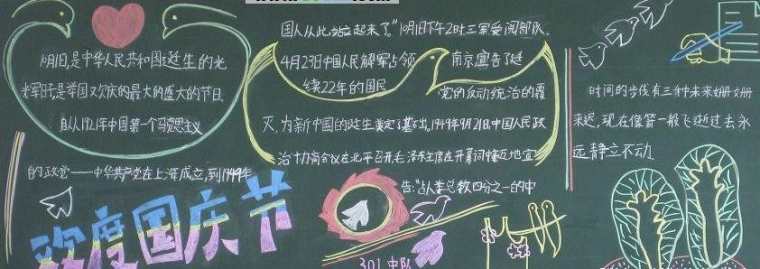 10月1日,是中华人民共和国诞生的光
辉日子,是举国欢庆的最大的盛大的节日
自从1921年中国第一个马克思主义
的政党——中华共产党在上海成立,到1949年
欢度国庆节
国人从此站立起来了。"10月1日下午2时三军受阅部队
4月23日中国人民解军占领 南京宣告了延
续22年的国民 党的反动统治的覆
灭,为新中国的诞生奠定了基础,1949年9月21日,中国人民政
治协商会议在北平召开毛泽东主席在开幕词中 地宣
告:"占人类总数四分之一的中
301中队
时间的步伐有三种未来姗姗
来迟,现在像箭一般飞逝过去永
远静立不动